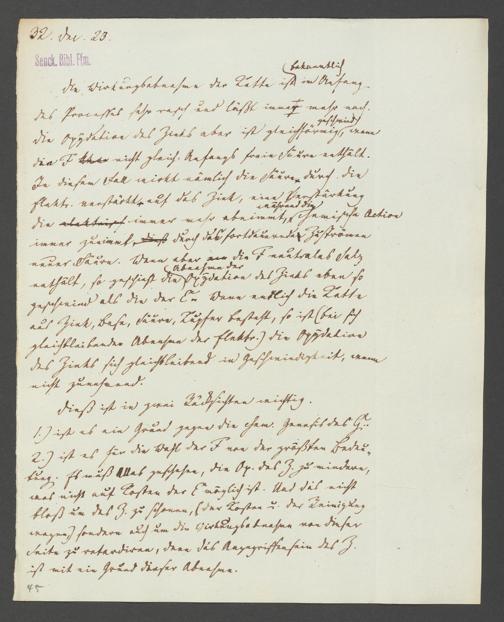 32. Dec. 23.
Senck. Bibl. Ffm.
bekanntlich
die Wirkungsabnahme der Kette ist im Anfang
des Processes sehr rasch und läßt immer mehr nach.
geschwind
die Oxydation des Zinks aber ist gleichförmig, wenn
die F nicht gleich Anfangs freie Säure enthält.
In diesem Fall wirkt nämlich die Säure durch die
Elektr. verstärkt auf das Zink, eine Verstärkung
während die
die immer mehr abnimmt, chemische Action
immer zunimmt, durch das fortdauernde Zuströmen
neuer Säure. Wenn aber die F neutrales Salz
Abnahme der
enthält, so geschieht die Oxydation des Zinks eben so
geschwind als die der E. Wenn endlich die Kette
aus Zink, Base, Säure, Kupfer besteht, so ist (bei
gleichbleibender Abnahme der Elektr.) die Oxydation
des Zinks sich gleichbleibend in Geschwindigkeit, wenn
nicht zunehmend.
Dieß ist in zwei Rücksichten wichtig.
1.) ist es ein Grund gegen die chem. Genesis des G.
2.) ist es für die Wahl der F von der größten Bedeu-
tung. Es muß alles geschehen, die Ox. des Z. zu mindern,
was nicht auf Kosten der E möglich ist. Und das nicht
bloß um des Z. zu schonen, (der Kosten u. der Reinigung
wegen) sondern auch um die Wirkungsabnahme von dieser
Seite zu retardiren, denn das Angegriffensein des Z.
ist mit ein Grund dieser Abnahme.
45